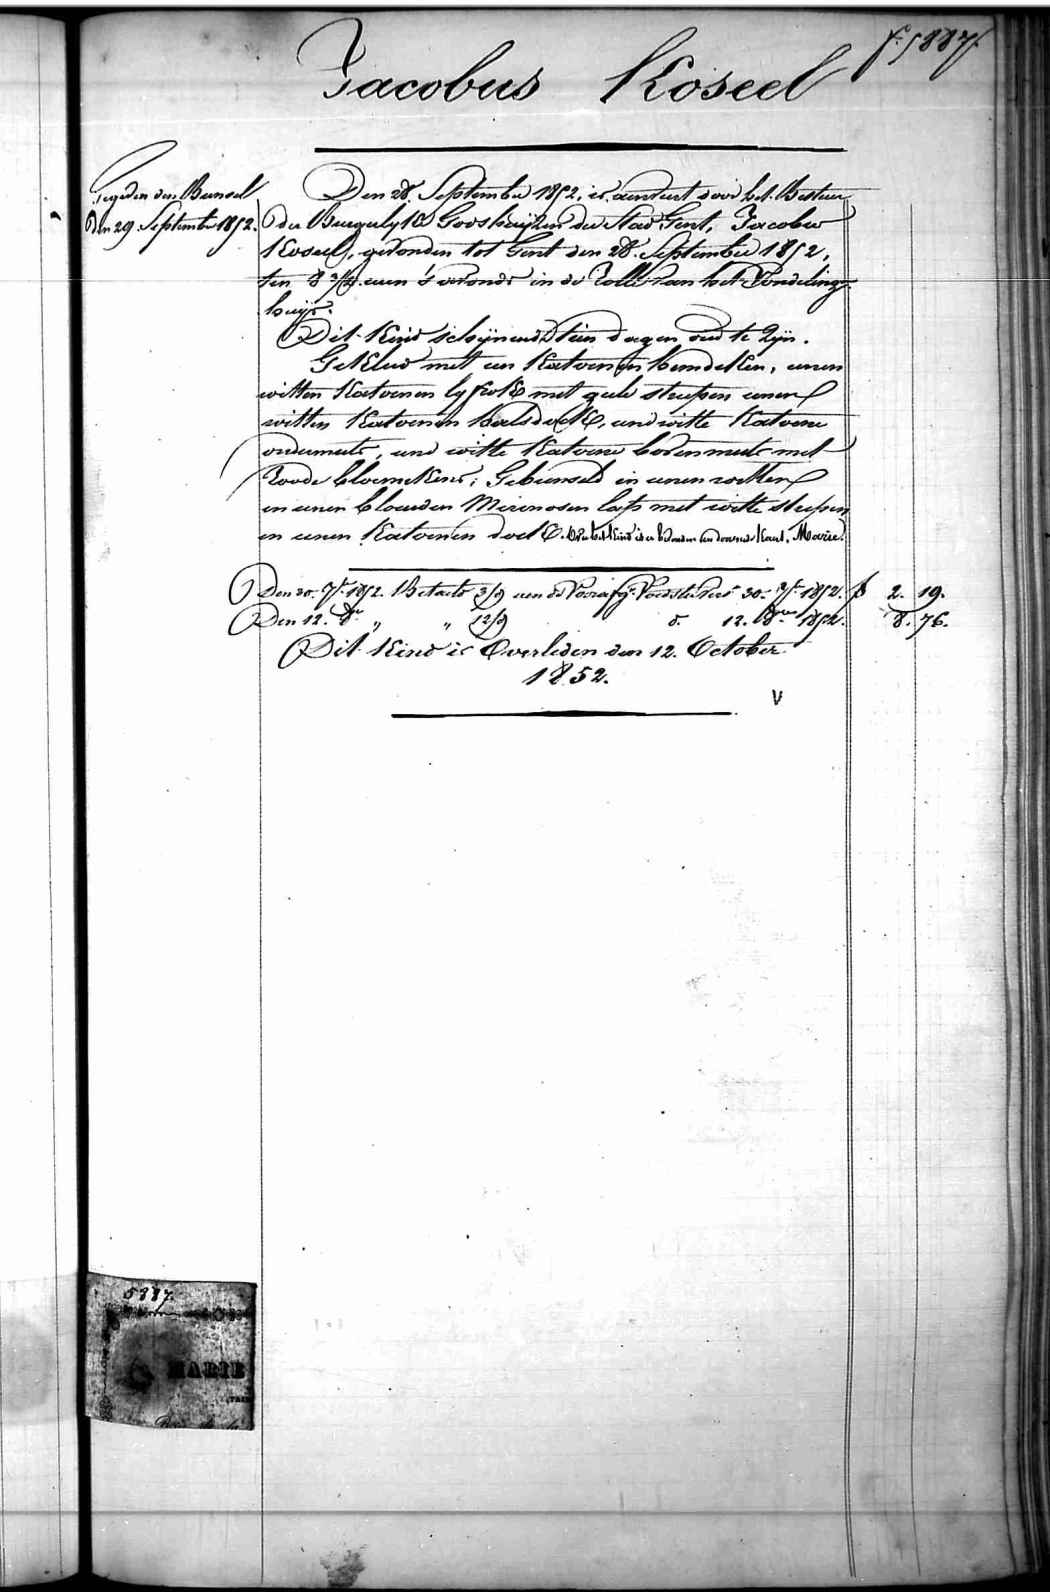 f. 5887.
Jacobus Koseel
Den 28. September 1852, is aenveert door het Bestuer
der Burgerlyke Godshuyzen der Stad Gent, Jacobus
Koseel, gevonden tot Gent den 28. September 1852,
ten 8 3/4 uren s'avonds in de Rolle van het Vondeling
huys.
Dit Kind schynende tien dagen oud te Zyn.
Gekleed met een Katoenen hemdeken, eenen
witten Katoenen lyfrok met geele streepen eenen
witten Katoenen halsdoek, eene witte Katoene
ondermuts, eene witte Katoene bovenmuts met
Roode bloemekens; Gebunseld in eenen witten
en eenen blauwen Merinosen lap met witte streepen
en eenen Katoenen doek. Kaert, Marie.
den Bunsel
Den 29. September 1852.
Den 30. 7br 1852. Betaeld 3/9 aen de Voorsz. Voedster 30. 7br 1852. f 2. 19.
Den 12. 8bre „ „ 12/9 d. 12. 8bre 1852. 8. 76.
Dit Kind is Overleden den 12. October
1852.
V
5887.
MARIE